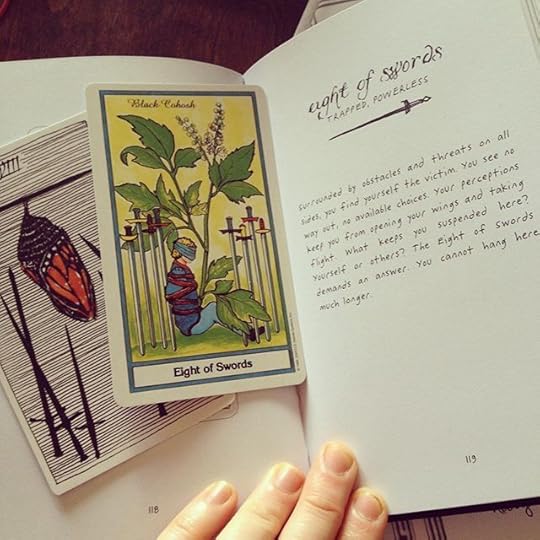 VIII
Black Cohosh
Eight of Swords
118
eight of swords
TRAPPED. POWERLESS
Surrounded by obstacles and threats on all
sides, you find yourself the victim. You see no
way out, no available choices. Your perceptions
keep you from opening your wings and taking
flight. What keeps you suspended here?
Yourself or others? The Eight of Swords
demands an answer. You cannot hang here
much longer.
119